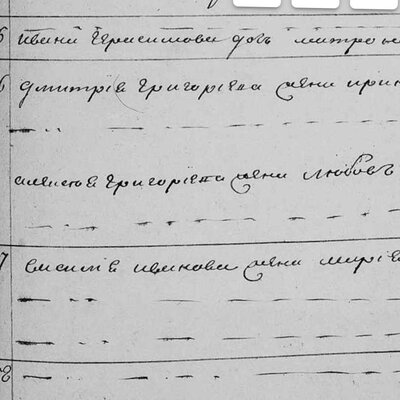 5 ивана Герасимова дочь митро
6 дмитрiя Григорiева жена ирин
алексея Григорiева жена любовь
7 василiя иванова жена марiя
8